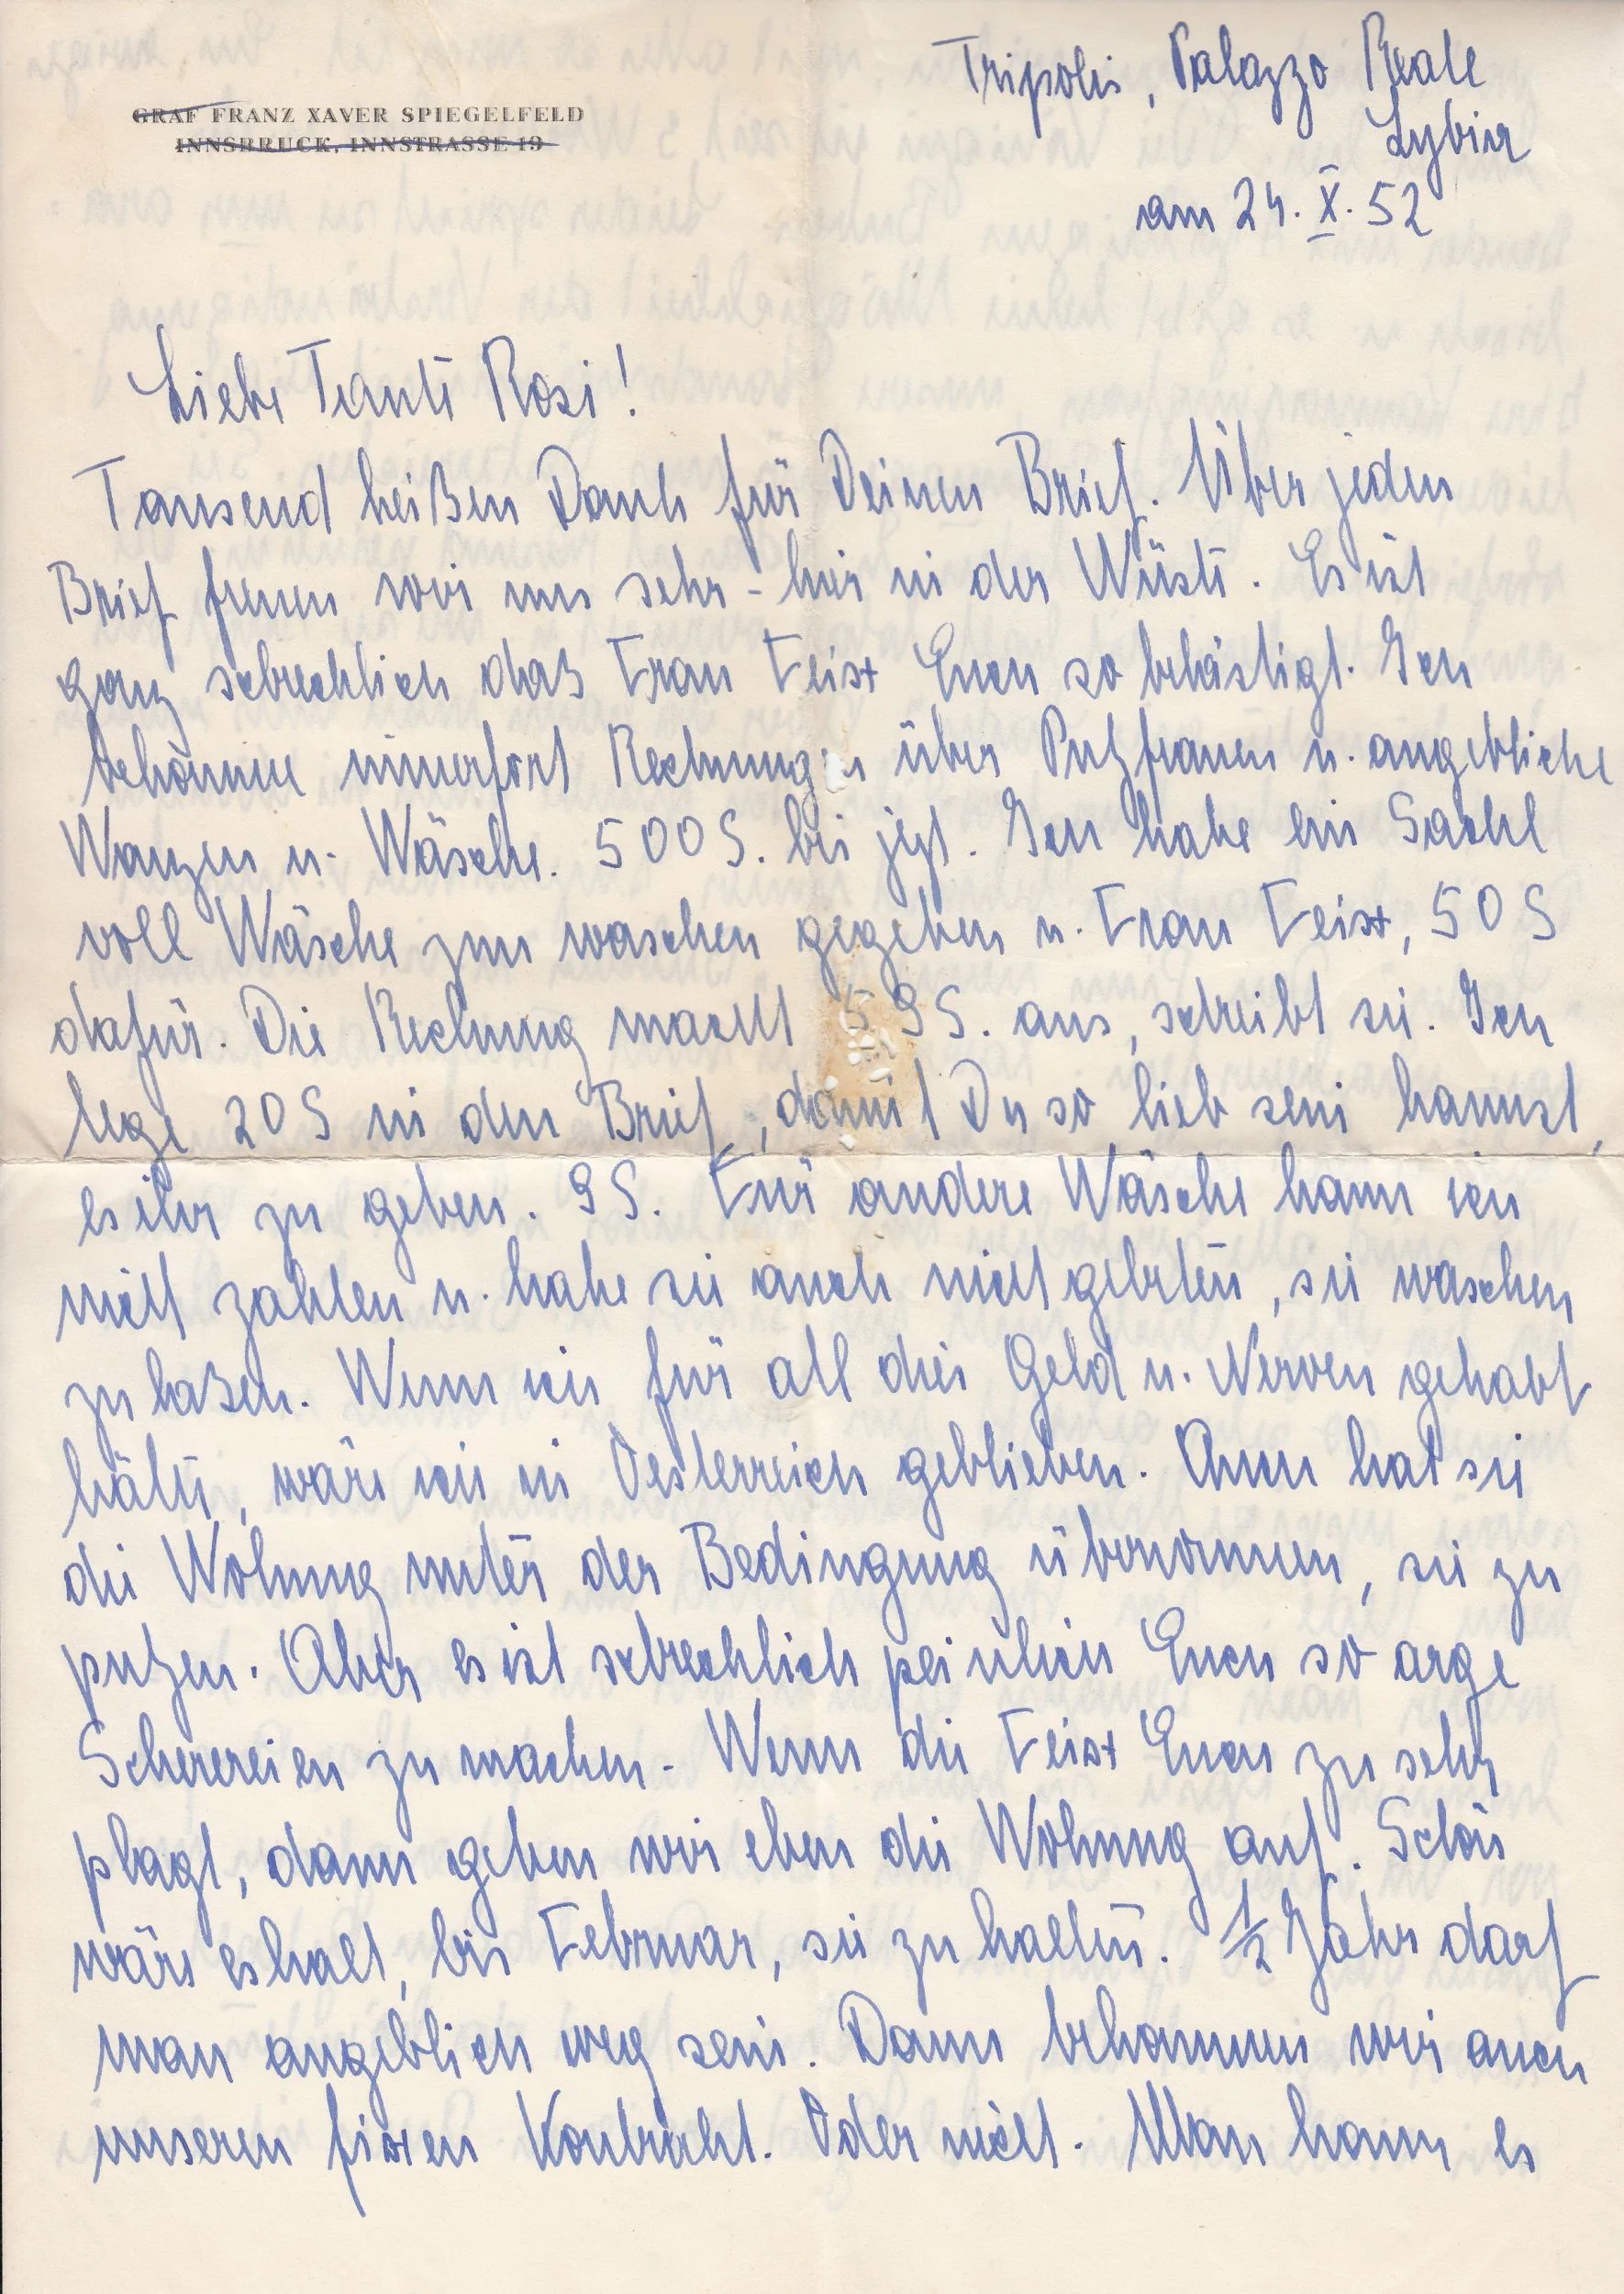 Tripolis, Palazzo Reale
Lybien
am 24. X. 52
GRAF FRANZ XAVER SPIEGELFELD
INNSBRUCK, INNSTRASSE 19
Liebe Tante Rosi!
Tausend heißen Dank für Deinen Brief. Über jeden
Brief freuen wir uns sehr - hier in der Wüste. Es ist
ganz schrecklich daß Frau Feist Euch so belästigt. Ich
bekomme immerfort Rechnungen über Putzfrauen u. angebliche
Wanzen u. Wäsche. 500 S. bis jetzt. Ich habe ein Sackl
voll Wäsche zum waschen gegeben u. Frau Feist, 50 S
dafür. Die Rechnung macht 59 S. aus, schreibt sie. Ich
lege 20 S in den Brief, damit Du so lieb sein kannst,
es ihr zu geben. 9 S. Für andere Wäsche kann ich
nicht zahlen u. habe sie auch nicht gebeten, sie waschen
zu laßen. Wenn ich für all dies Geld u. Nerven gehabt
hätte, wäre ich in Oesterreich geblieben. Auch hat sie
die Wohnung unter der Bedingung übernommen, sie zu
putzen. Aber es ist schrecklich peinlich Euch so arge
Scherereien zu machen - Wenn die Feist Euch zu sehr
plagt, dann geben wir eben die Wohnung auf. Schön
wäre es halt, bis Februar, sie zu halten. 1/2 Jahr darf
man angeblich weg sein. Dann bekommen wir auch
unseren fixen Kontrakt. Oder nicht. Man kann es